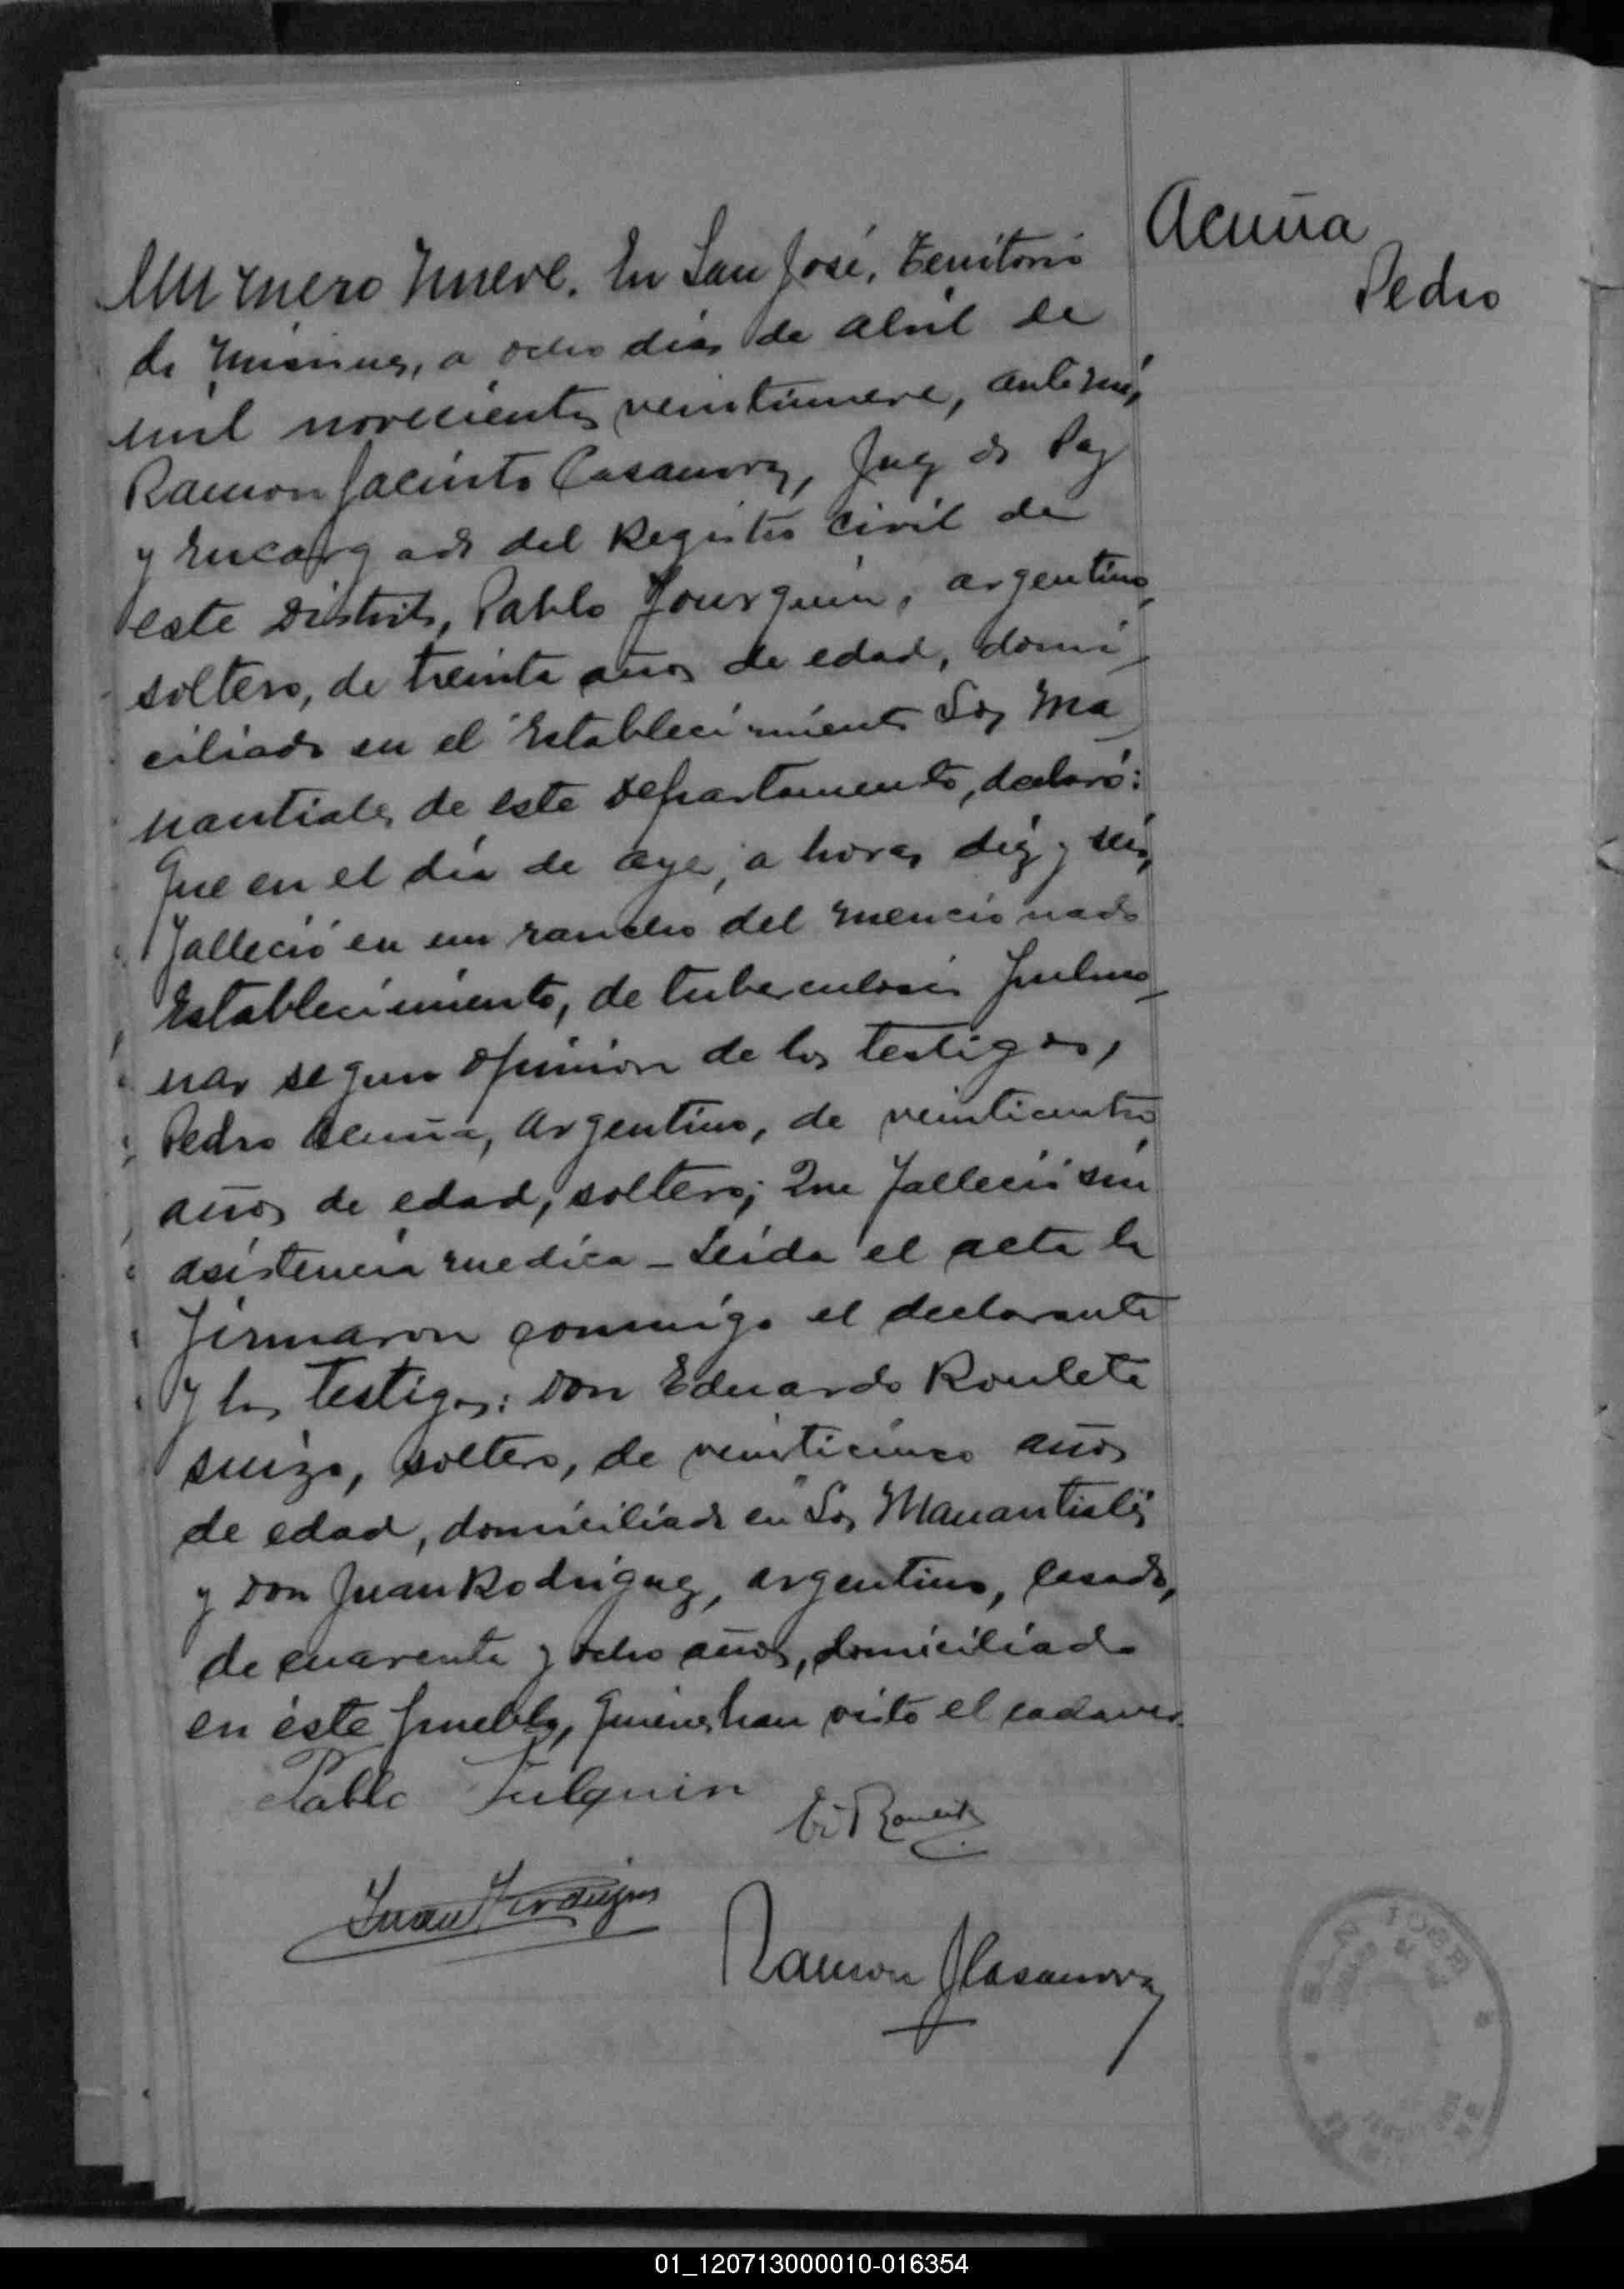 Acuña
Pedro
Número Nueve. En San José, Territorio
de Misiones, a ocho dias de Abril de
mil novecientos veintinueve, ante mi,
Ramon Jacinto Casanova, Juez de Paz
y Encargado del Registro Civil de
este Distrito, Pablo argentino,
soltero, de treinta años de edad, domi
ciliado en el Establecimiento Los Ma
nantiales de este Departamento, declaró:
Que en el dia de ayer, a horas diez y seis,
falleció en un rancho del mencionado
Establecimiento, de tuberculosis pulmo
nar segun opinion de los testigos,
Pedro Acuña, Argentino, de
años de edad, soltero; Que falleció sin
asistencia medica - Leida el acta la
firmaron conmigo el declarante
y los testigos: Don Eduardo
suizo, soltero, de veinticinco años
de edad, domiciliado en "Los Manantiales"
y Don Juan Rodriguez, argentino, casado,
de cuarenta y ocho años, domiciliado
en éste pueblo, quienes han visto el cadaver.
Pablo
Juan
Ramon J Casanova
SAN JOSE
01_120713000010-016354